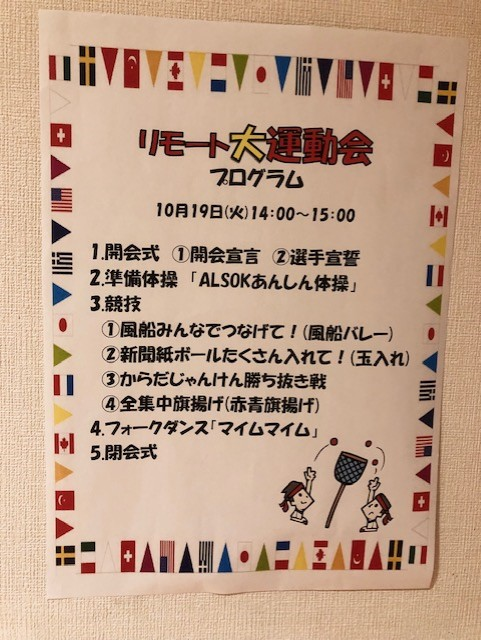 リモート大運動会
プログラム
10月19日(火)14:00～15:00
1.開会式 ①開会宣言 ②選手宣誓
2.準備体操 「ALSOKあんしん体操」
3.競技
①風船みんなでつなげて！(風船バレー)
②新聞紙ボールたくさん入れて！(玉入れ)
③からだじゃんけん勝ち抜き戦
④全集中旗揚げ(赤青旗揚げ)
4.フォークダンス「マイムマイム」
5.閉会式